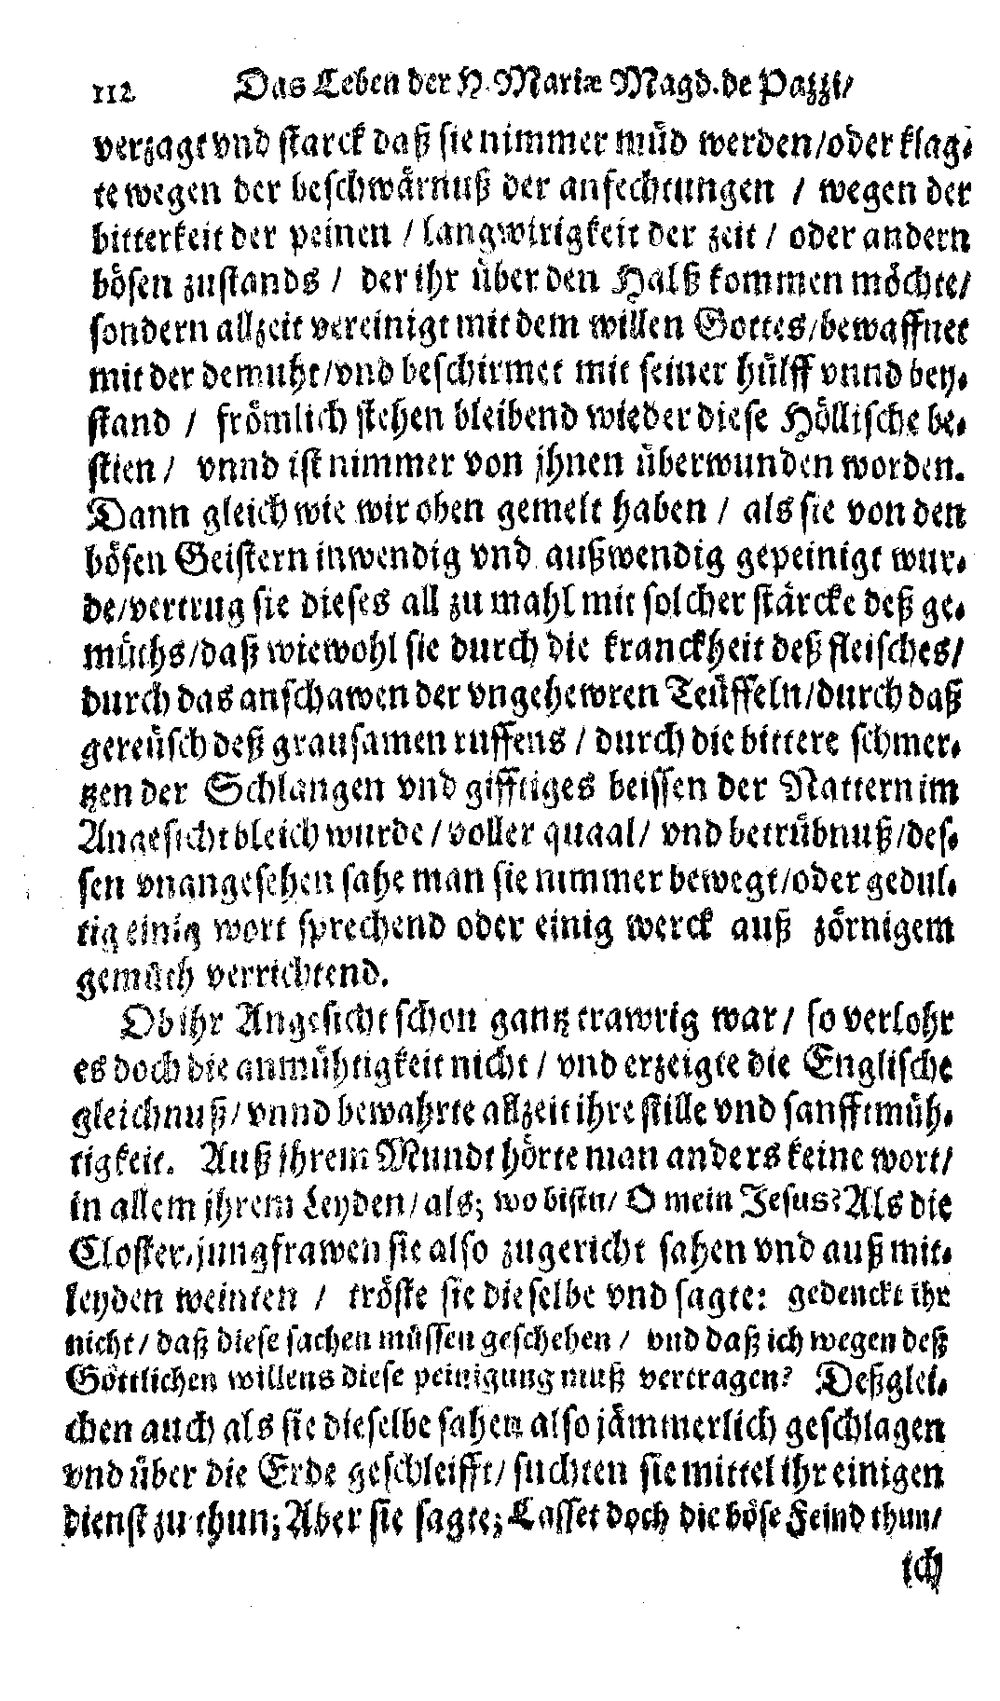 112 Das Leben der H. Mariæ Magd. de Pazzi/
verzagt vnd starck daß sie nimmer müd werden/oder klag-
te wegen der beschwärnuß der anfechtungen / wegen der
bitterkeit der peinen / langwirigkeit der zeit / oder andern
bösen zustands / der ihr über den Halß kommen möchte/
sondern allzeit vereinigt mit dem willen Gottes/bewaffnet
mit der demuht/vnd beschirmet mit seiner hülff vnnd bey-
stand / frömlich stehen bleibend wieder diese Höllische be-
stien / vnnd ist nimmer von jhnen überwunden worden.
Dann gleich wie wir oben gemelt haben / als sie von den
bösen Geistern inwendig vnd außwendig gepeinigt wur-
de/vertrug sie dieses all zu mahl mit solcher stärcke deß ge-
müths/daß wiewohl sie durch die kranckheit deß fleisches/
durch das anschawen der vngehewren Teüffeln/durch daß
gereüsch deß grausamen ruffens / durch die bittere schmer-
tzen der Schlangen vnd gifftiges beissen der Nattern im
Angesicht bleich wurde/voller quaal/ vnd betrübnuß/des-
sen vnangesehen sahe man sie nimmer bewegt/oder gedul-
tig einig wort sprechend oder einig werck auß zörnigem
gemüth verrichtend.
Ob ihr Angesicht schon gantz trawrig war / so verlohr
es doch die anmühtigkeit nicht / vnd erzeigte die Englische
gleichnuß/vnnd bewahrte allzeit ihre stille vnd sanfftmüh-
tigkeit. Auß jhrem Mundt hörte man anders keine wort/
in allem jhrem Leyden/als; wo bistu/ O mein Jesus? Als die
Closter-jungfrawen sie also zugericht sahen vnd auß mit-
leyden weinten / tröste sie dieselbe vnd sagte: gedenckt ihr
nicht / daß diese sachen müssen geschehen / vnd daß ich wegen deß
Göttlichen willens diese peinigung muß vertragen? Deßglei-
chen auch als sie dieselbe sahen also jämmerlich geschlagen
vnd über die Erde geschleifft/suchten sie mittel ihr einigen
dienst zu thun; Aber sie sagte; Lasset doch die böse Feind thun/
ich